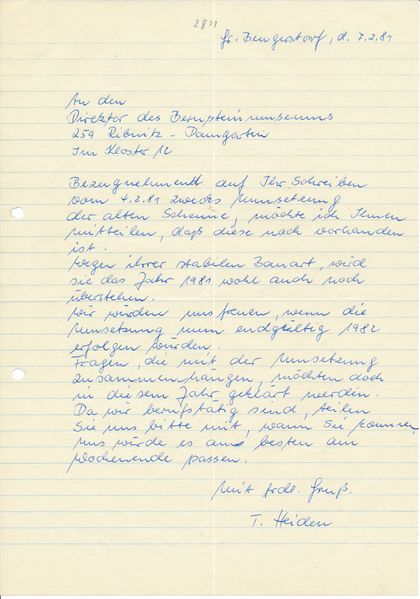 2831
Gr. Bengerstorf, d. 7.2.81
An den
Direktor des Bernsteinmuseums
259 Ribnitz - Damgarten
Im Kloster 12
Bezugnehmend auf Ihr Schreiben
vom 4.2.81 zwecks Umsetzung
der alten Scheune, möchte ich Ihnen
mitteilen, daß diese noch vorhanden
ist.
Wegen ihrer stabilen Bauart, wird
sie das Jahr 1981 wohl auch noch
überstehen.
Wir würden uns freuen, wenn die
Umsetzung nun endgültig 1982
erfolgen würden.
Fragen, die mit der Umsetzung
zusammenhängen, möchten doch
in diesem Jahr geklärt werden.
Da wir berufstätig sind, teilen
Sie uns bitte mit, wann Sie kommen,
uns würde es am besten am
Wochenende passen.
Mit frdl. Gruß.
T. Heiden